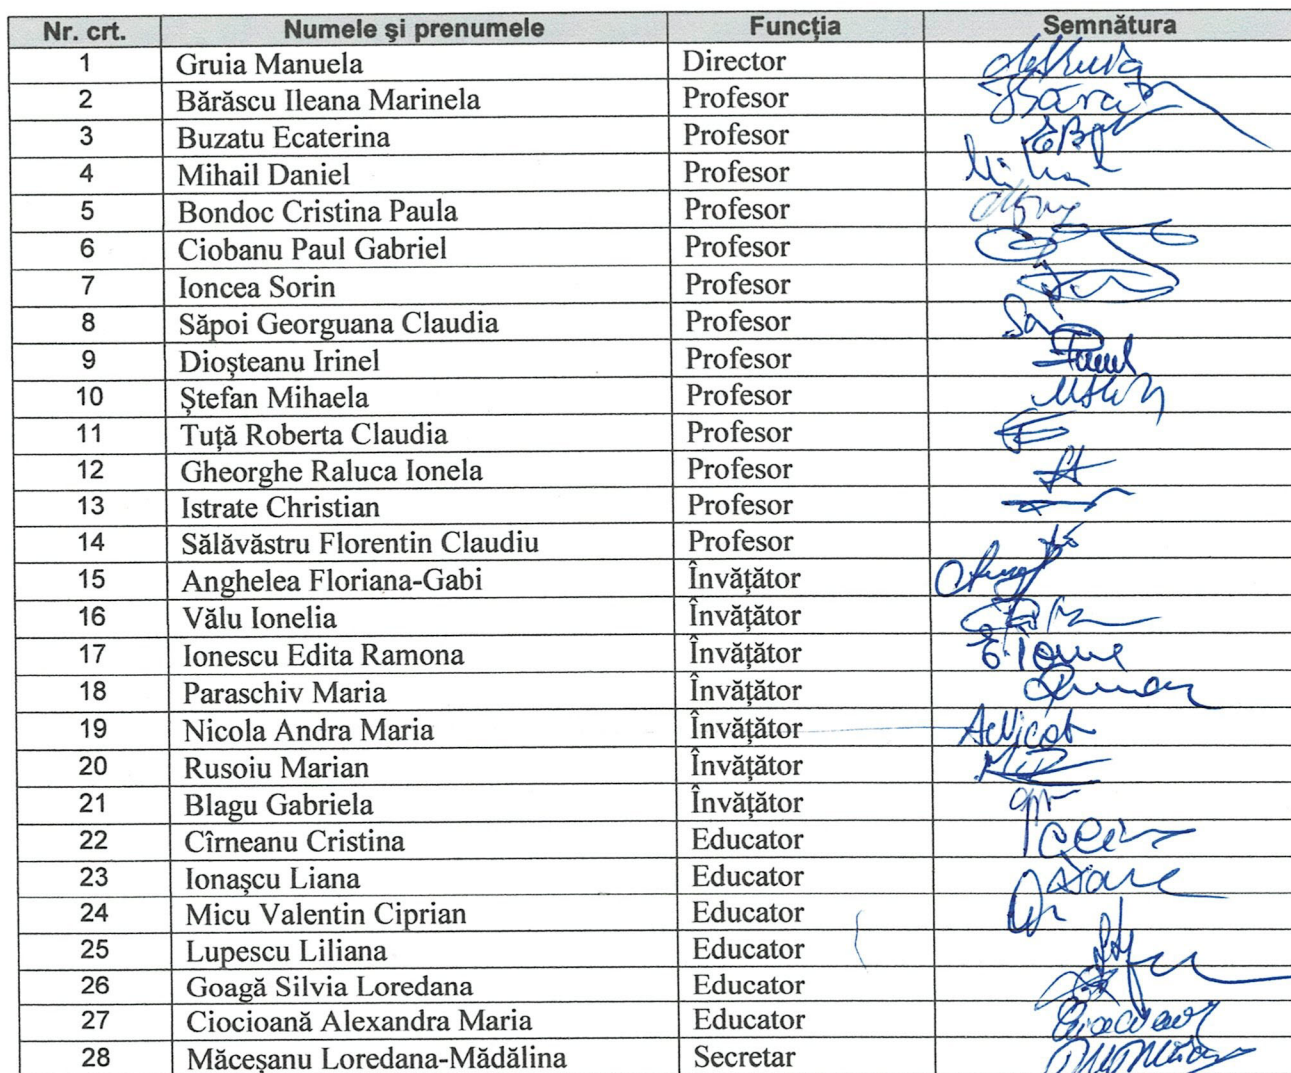 Nr. crt. Numele şi prenumele Funcţia Semnătura
1 Gruia Manuela Director
2 Bărăscu Ileana Marinela Profesor
3 Buzatu Ecaterina Profesor
4 Mihail Daniel Profesor
5 Bondoc Cristina Paula Profesor
6 Ciobanu Paul Gabriel Profesor
7 Ioncea Sorin Profesor
8 Săpoi Georguana Claudia Profesor
9 Dioșteanu Irinel Profesor
10 Ștefan Mihaela Profesor
11 Tuță Roberta Claudia Profesor
12 Gheorghe Raluca Ionela Profesor
13 Istrate Christian Profesor
14 Sălăvăstru Florentin Claudiu Profesor
15 Anghelea Floriana-Gabi Învățător
16 Vălu Ionelia Învățător
17 Ionescu Edita Ramona Învățător
18 Paraschiv Maria Învățător
19 Nicola Andra Maria Învățător
20 Rusoiu Marian Învățător
21 Blagu Gabriela Învățător
22 Cîrneanu Cristina Educator
23 Ionașcu Liana Educator
24 Micu Valentin Ciprian Educator
25 Lupescu Liliana Educator
26 Goagă Silvia Loredana Educator
27 Ciocioană Alexandra Maria Educator
28 Măceșanu Loredana-Mădălina Secretar